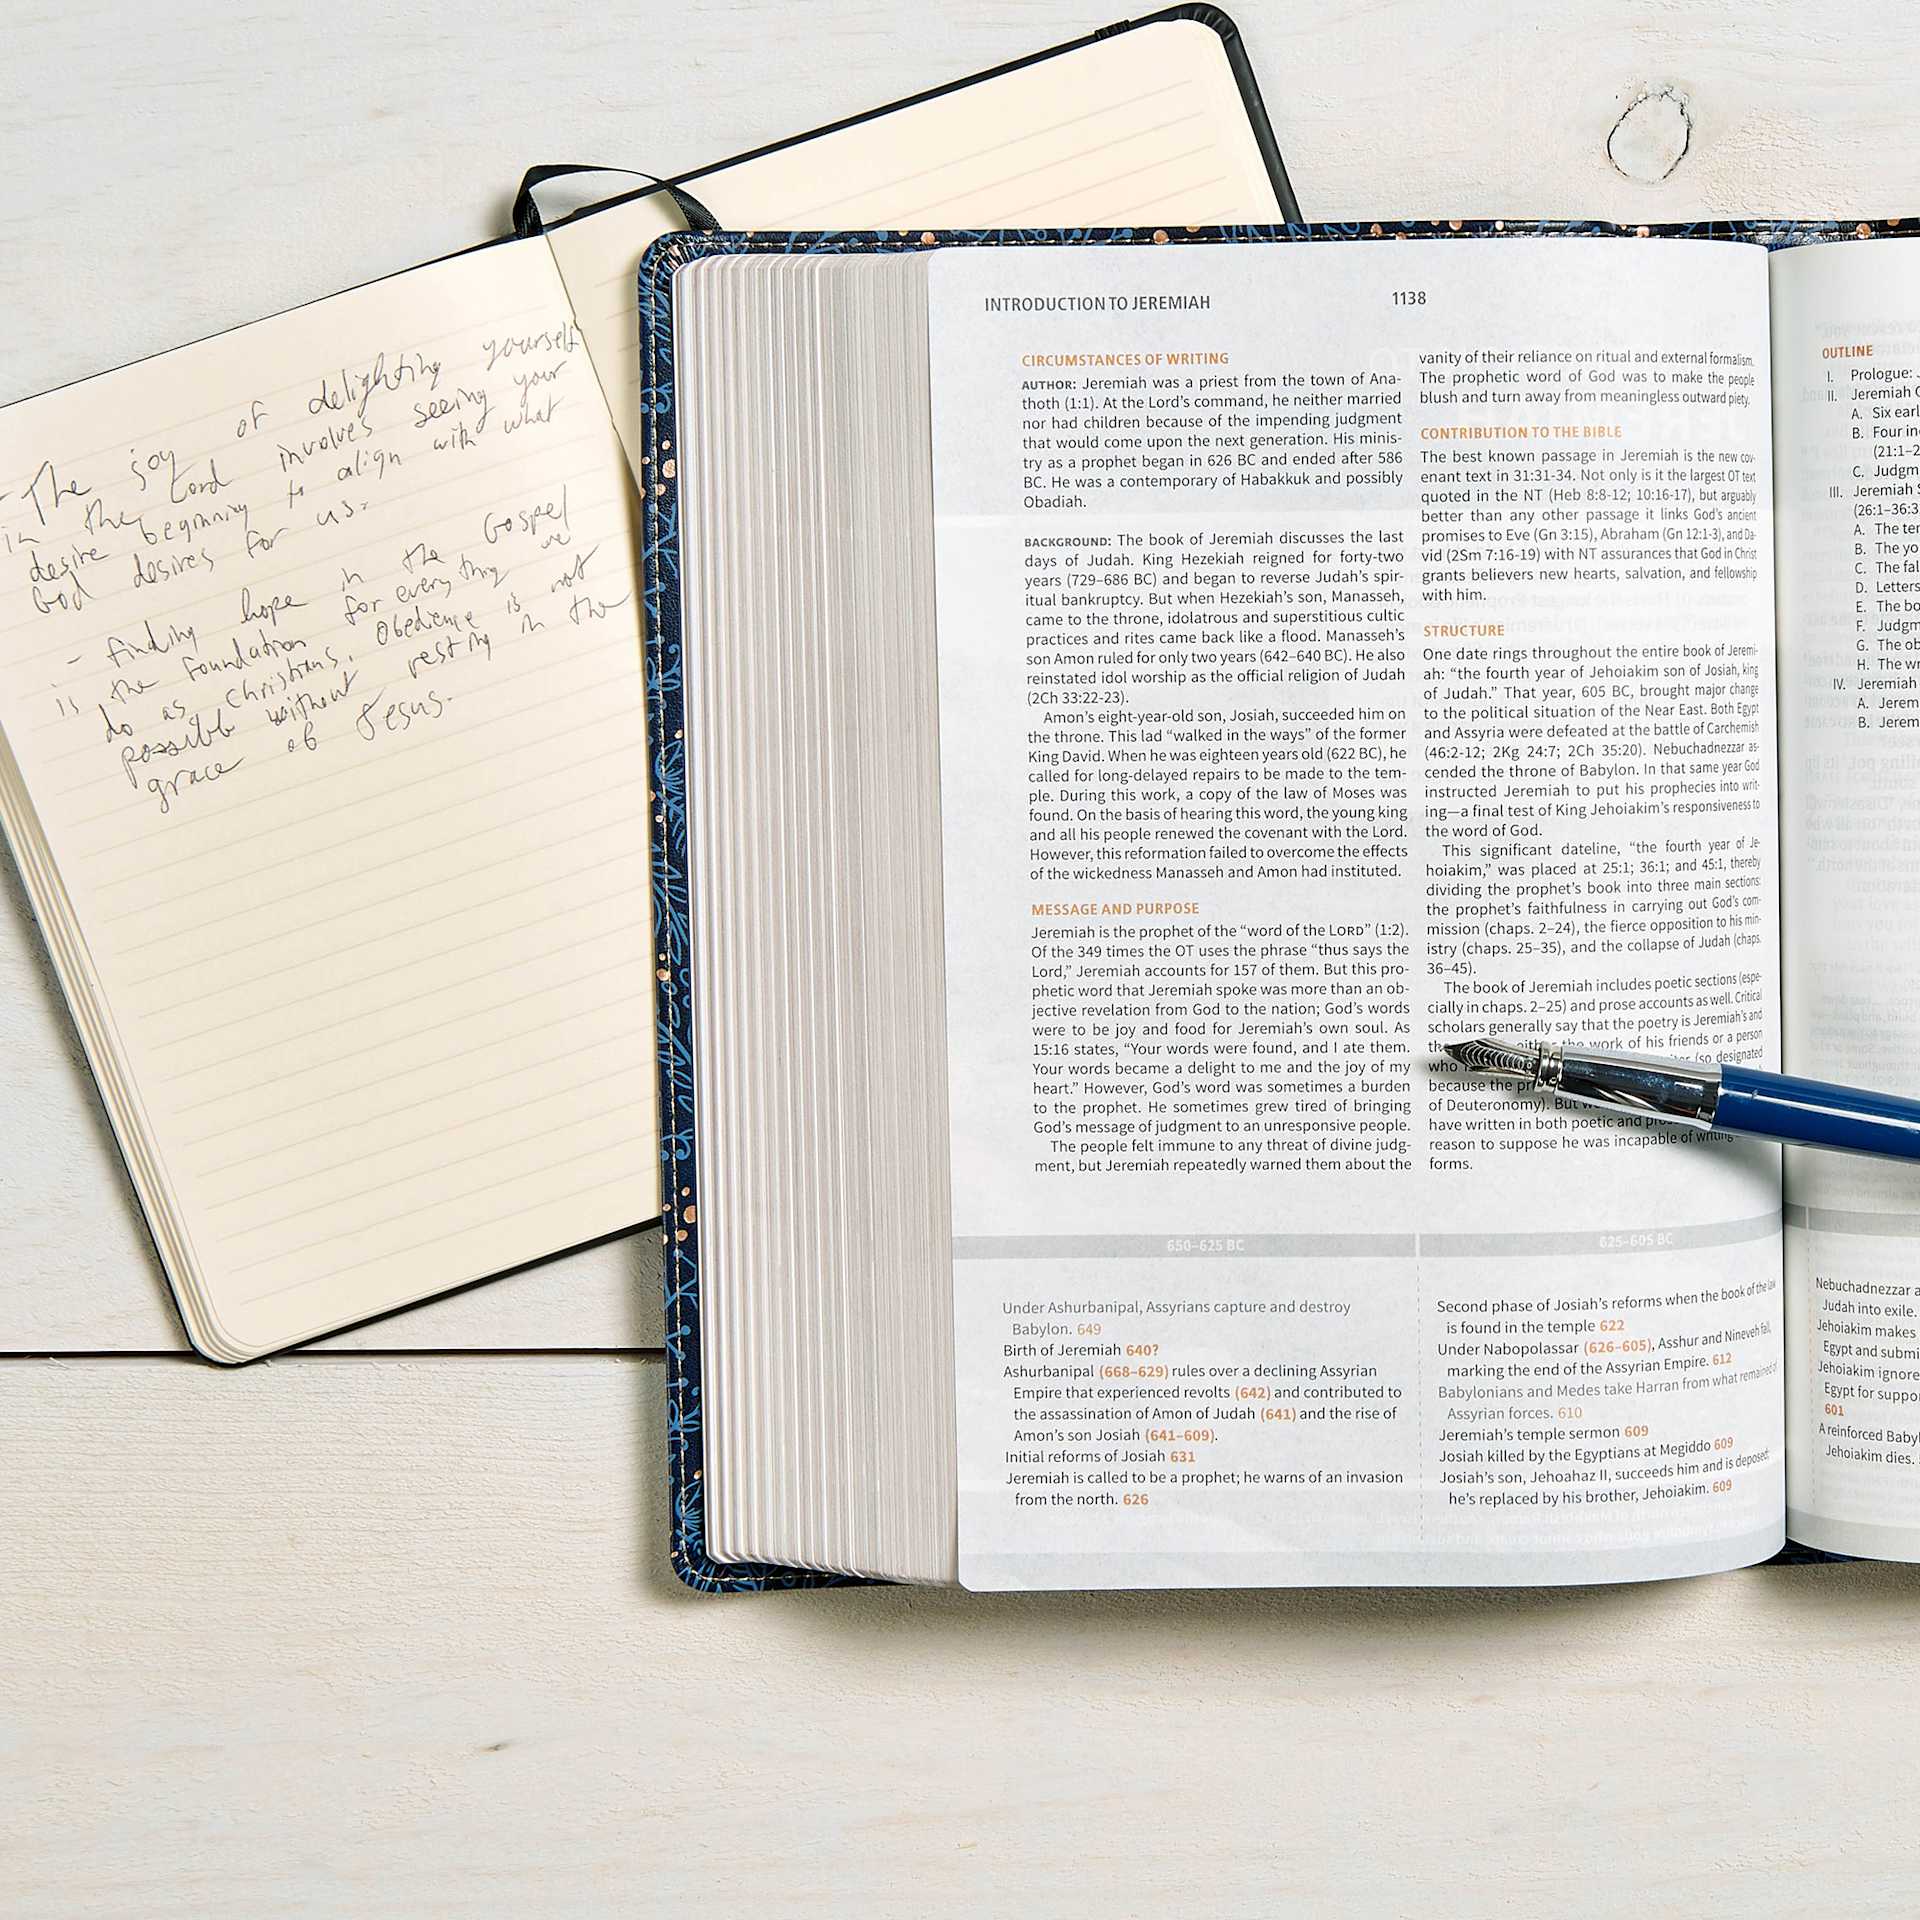 - The joy of delighting yourself
in the Lord involves seeing your
desire beginning to align with what
God desires for us.
- finding hope in the Gospel
is the foundation for everything we
do as Christians. Obedience is not
possible without resting in the
grace of Jesus.
INTRODUCTION TO JEREMIAH 1138
CIRCUMSTANCES OF WRITING
AUTHOR: Jeremiah was a priest from the town of Ana-
thoth (1:1). At the Lord's command, he neither married
nor had children because of the impending judgment
that would come upon the next generation. His minis-
try as a prophet began in 626 BC and ended after 586
BC. He was a contemporary of Habakkuk and possibly
Obadiah.
BACKGROUND: The book of Jeremiah discusses the last
days of Judah. King Hezekiah reigned for forty-two
years (729–686 BC) and began to reverse Judah's spir-
itual bankruptcy. But when Hezekiah's son, Manasseh,
came to the throne, idolatrous and superstitious cultic
practices and rites came back like a flood. Manasseh's
son Amon ruled for only two years (642–640 BC). He also
reinstated idol worship as the official religion of Judah
(2Ch 33:22-23).
Amon's eight-year-old son, Josiah, succeeded him on
the throne. This lad "walked in the ways" of the former
King David. When he was eighteen years old (622 BC), he
called for long-delayed repairs to be made to the tem-
ple. During this work, a copy of the law of Moses was
found. On the basis of hearing this word, the young king
and all his people renewed the covenant with the Lord.
However, this reformation failed to overcome the effects
of the wickedness Manasseh and Amon had instituted.
MESSAGE AND PURPOSE
Jeremiah is the prophet of the "word of the LORD" (1:2).
Of the 349 times the OT uses the phrase "thus says the
Lord," Jeremiah accounts for 157 of them. But this pro-
phetic word that Jeremiah spoke was more than an ob-
jective revelation from God to the nation; God's words
were to be joy and food for Jeremiah's own soul. As
15:16 states, "Your words were found, and I ate them.
Your words became a delight to me and the joy of my
heart." However, God's word was sometimes a burden
to the prophet. He sometimes grew tired of bringing
God's message of judgment to an unresponsive people.
The people felt immune to any threat of divine judg-
ment, but Jeremiah repeatedly warned them about the
vanity of their reliance on ritual and external formalism.
The prophetic word of God was to make the people
blush and turn away from meaningless outward piety.
CONTRIBUTION TO THE BIBLE
The best known passage in Jeremiah is the new cov-
enant text in 31:31-34. Not only is it the largest OT text
quoted in the NT (Heb 8:8-12; 10:16-17), but arguably
better than any other passage it links God's ancient
promises to Eve (Gn 3:15), Abraham (Gn 12:1-3), and Da-
vid (2Sm 7:16-19) with NT assurances that God in Christ
grants believers new hearts, salvation, and fellowship
with him.
STRUCTURE
One date rings throughout the entire book of Jeremi-
ah: "the fourth year of Jehoiakim son of Josiah, king
of Judah." That year, 605 BC, brought major change
to the political situation of the Near East. Both Egypt
and Assyria were defeated at the battle of Carchemish
(46:2-12; 2Kg 24:7; 2Ch 35:20). Nebuchadnezzar as-
cended the throne of Babylon. In that same year God
instructed Jeremiah to put his prophecies into writ-
ing—a final test of King Jehoiakim's responsiveness to
the word of God.
This significant dateline, "the fourth year of Je-
hoiakim," was placed at 25:1; 36:1; and 45:1, thereby
dividing the prophet's book into three main sections:
the prophet's faithfulness in carrying out God's com-
mission (chaps. 2–24), the fierce opposition to his min-
istry (chaps. 25–35), and the collapse of Judah (chaps.
36–45).
The book of Jeremiah includes poetic sections (espe-
cially in chaps. 2–25) and prose accounts as well. Critical
scholars generally say that the poetry is Jeremiah's and
the work of his friends or a person
who (so designated
because the
of Deuteronomy). But
have written in both poetic and
reason to suppose he was incapable of writing
forms.
650–625 BC
Under Ashurbanipal, Assyrians capture and destroy
Babylon. 649
Birth of Jeremiah 640?
Ashurbanipal (668–629) rules over a declining Assyrian
Empire that experienced revolts (642) and contributed to
the assassination of Amon of Judah (641) and the rise of
Amon's son Josiah (641–609).
Initial reforms of Josiah 631
Jeremiah is called to be a prophet; he warns of an invasion
from the north. 626
625–605 BC
Second phase of Josiah's reforms when the book of the law
is found in the temple 622
Under Nabopolassar (626–605), Asshur and Nineveh fall,
marking the end of the Assyrian Empire. 612
Babylonians and Medes take Harran from what remained of
Assyrian forces. 610
Jeremiah's temple sermon 609
Josiah killed by the Egyptians at Megiddo 609
Josiah's son, Jehoahaz II, succeeds him and is deposed;
he's replaced by his brother, Jehoiakim. 609
OUTLINE
I. Prologue:
II. Jeremiah
A. Six
B. Four
(21:1–
C.
III. Jeremiah
(26:1–36:3
A. The
B. The
C. The
D. Letters
E. The
F.
G. The
H. The
IV. Jeremiah
A.
B.
Nebuchadnezzar
Judah into exile.
Jehoiakim makes
Egypt and
Jehoiakim
Egypt for
601
A reinforced
Jehoiakim dies.